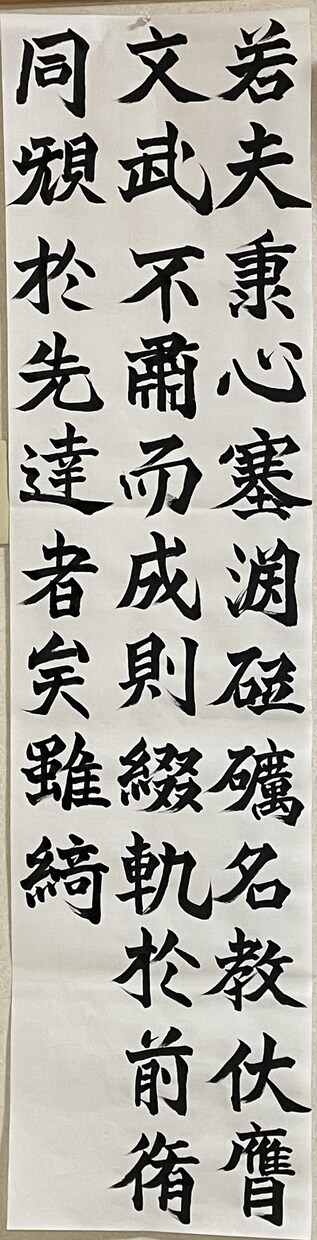 若夫秉心塞渕砥礪名教伏膺
文武不肅而成則綴軌於前脩
同規於先達者矣雖綺